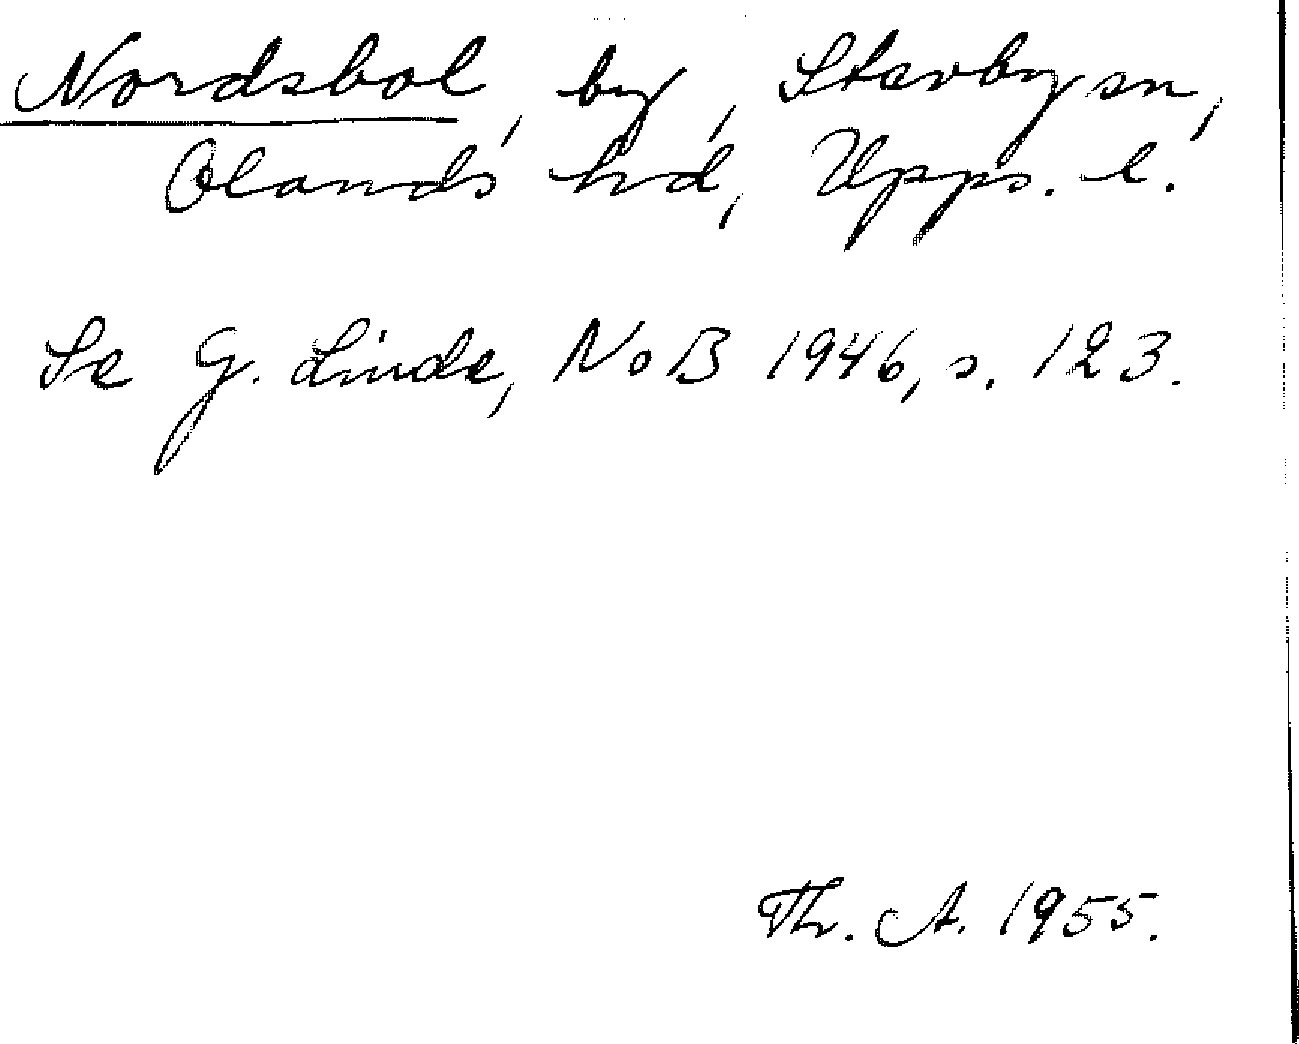 Nordsbol, by, Stavby sn,
Olands hd, Upps. l.
Se G. Linde, NoB 1946, s. 123.
Th. A. 1955.